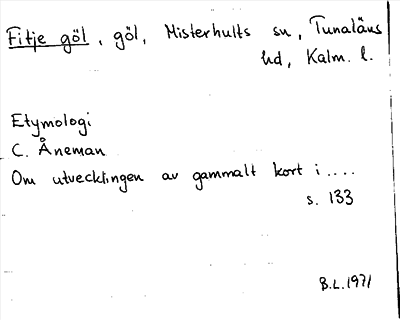 Fitje göl, göl, Misterhults sn, Tunaläns
hd, Kalm. l.
Etymologi
C. Åneman
Om utvecklingen av gammalt kort i ....
s. 133
B.L. 1971